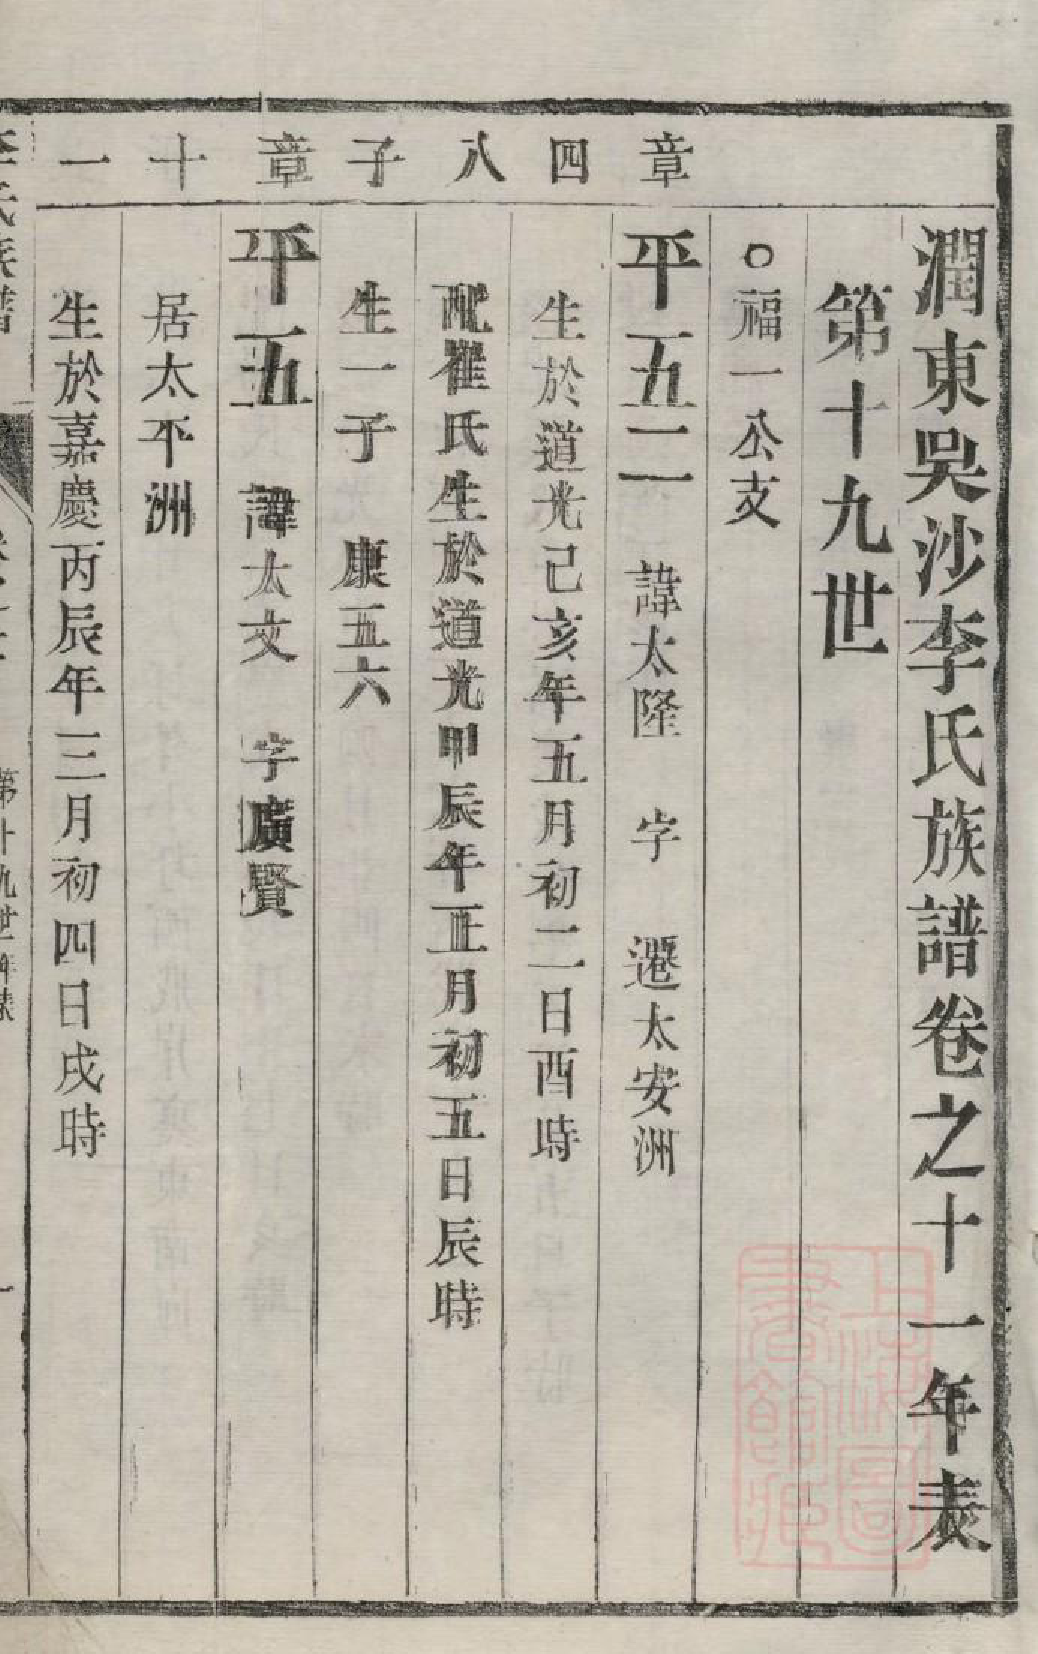 潤東吳沙李氏族譜卷之十一年表
第十九世
○福一公支
章四八子
平五二 諱太隆 字 遷太安洲
生於道光己亥年五月初二日酉時
配崔氏生於道光甲辰年正月初五日辰時
生一子 康五六
章十一
平五 諱太文 字廣賢
居太平洲
生於嘉慶丙辰年三月初四日戌時
李氏族譜
第十九世年表
一
上海圖書館藏